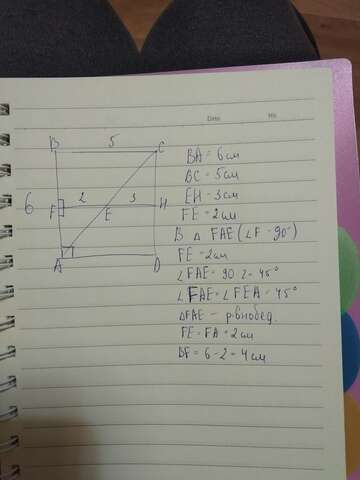 Date No.
B 5 C
6 F 2 E 3 H
A D
BA = 6 см
BC = 5 см
EH = 3 см
FE = 2 см
В △ FAE (∠F = 90°)
FE = 2 см
∠FAE = 90:2 = 45°
∠FAE = ∠FEA = 45°
△FAE – рвнобед.
FE = FA = 2 см
BF = 6 - 2 = 4 см